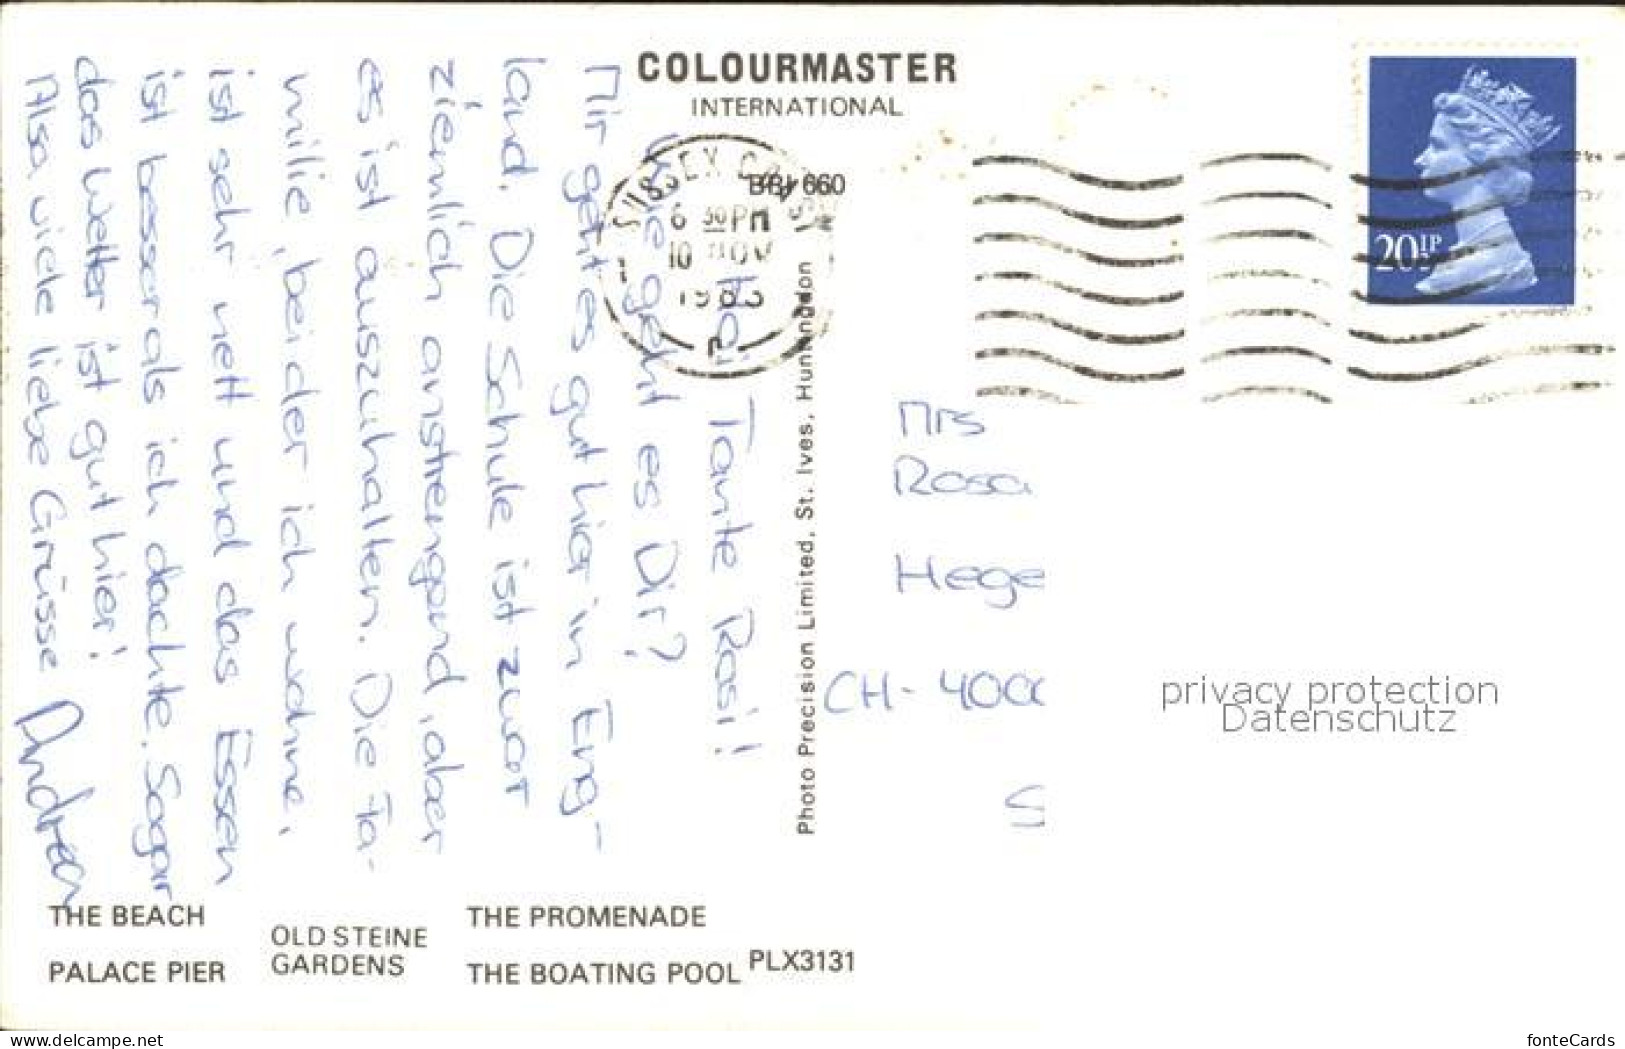 COLOURMASTER
INTERNATIONAL
BBI 660
SUSSEX COAST
6 30 PM
10 NOV
1983
20½P
Hoi Tante Rosi!
Wie geht es Dir?
Mir geht es gut hier in Eng-
land. Die Schule ist zwar
ziemlich anstrengend, aber
es ist auszuhalten. Die Fa-
milie, bei der ich wohne,
ist sehr nett und das Essen
ist besser als ich dachte. Sogar
das Wetter ist gut hier!
Also viele liebe Grüsse
Andrea
Photo Precision Limited, St. Ives, Huntingdon
Mrs
Rosa
Hege
CH-4000
S
privacy protection
Datenschutz
THE BEACH
PALACE PIER
OLD STEINE
GARDENS
THE PROMENADE
THE BOATING POOL
PLX3131
www.delcampe.net
fonteCards